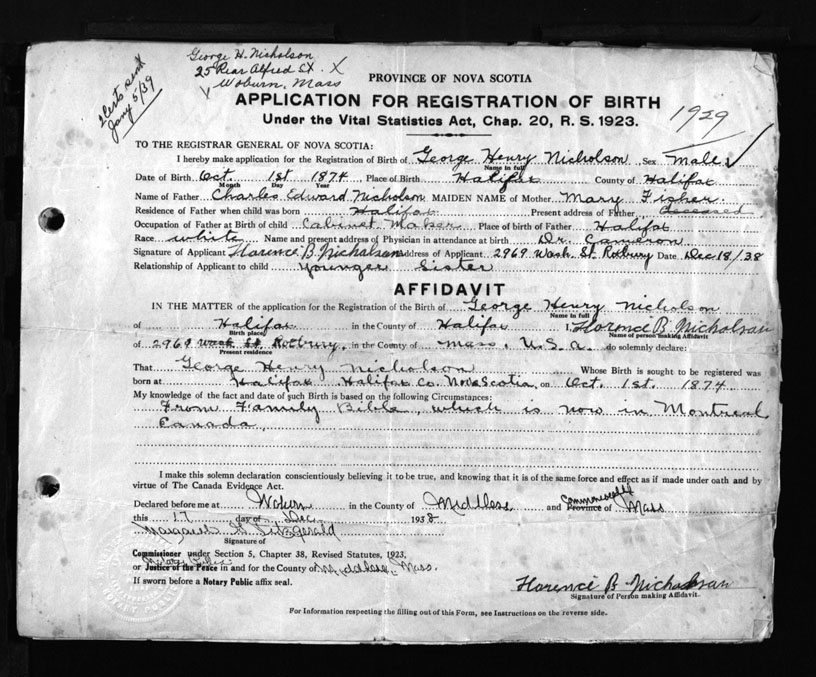 George H. Nicholson
25 Rear Alfred St. X
Woburn, Mass
2 Certs sent
Jany 5/39
PROVINCE OF NOVA SCOTIA
APPLICATION FOR REGISTRATION OF BIRTH
Under the Vital Statistics Act, Chap. 20, R. S. 1923.
1929
TO THE REGISTRAR GENERAL OF NOVA SCOTIA:
I hereby make application for the Registration of Birth of George Henry Nicholson Sex Male
Name in full
Date of Birth Oct 1st 1874 Place of Birth Halifax County of Halifax
Month Day Year
Name of Father Charles Edward Nicholson MAIDEN NAME of Mother Mary Fisher
Residence of Father when child was born Halifax Present address of Father deceased
Occupation of Father at Birth of child Cabinet Maker Place of birth of Father Halifax
Race white Name and present address of Physician in attendance at birth Dr. Cameron
Signature of Applicant Florence B. Nicholson Address of Applicant 2969 Wash. St Roxbury Date Dec 18/38
Relationship of Applicant to child Younger Sister
AFFIDAVIT
IN THE MATTER of the application for the Registration of the Birth of George Henry Nicholson
Name in full
of Halifax in the County of Halifax I, Florence B. Nicholson
Birth place Name of person making Affidavit
of 2969 Wash St. Roxbury, in the County of Mass, U.S.A. do solemnly declare:
Present residence
That George Henry Nicholson Whose Birth is sought to be registered was
born at Halifax Halifax Co. Nova Scotia, on Oct. 1st. 1874
My knowledge of the fact and date of such Birth is based on the following Circumstances:
From Family Bible, which is now in Montreal
Canada,
I make this solemn declaration conscientiously believing it to be true, and knowing that it is of the same force and effect as if made under oath and by
virtue of The Canada Evidence Act.
Commonwealth
Declared before me at Woburn in the County of Middlesex and Province of Mass
this 17 day of Dec. 1938
Margaret Fitzgerald
Signature of
Commissioner under Section 5, Chapter 38, Revised Statutes, 1923,
Notary Public
or Justice of the Peace in and for the County of Middlesex, Mass.
If sworn before a Notary Public affix seal.
Florence B. Nicholson
Signature of Person making Affidavit.
For Information respecting the filling out of this Form, see Instructions on the reverse side.